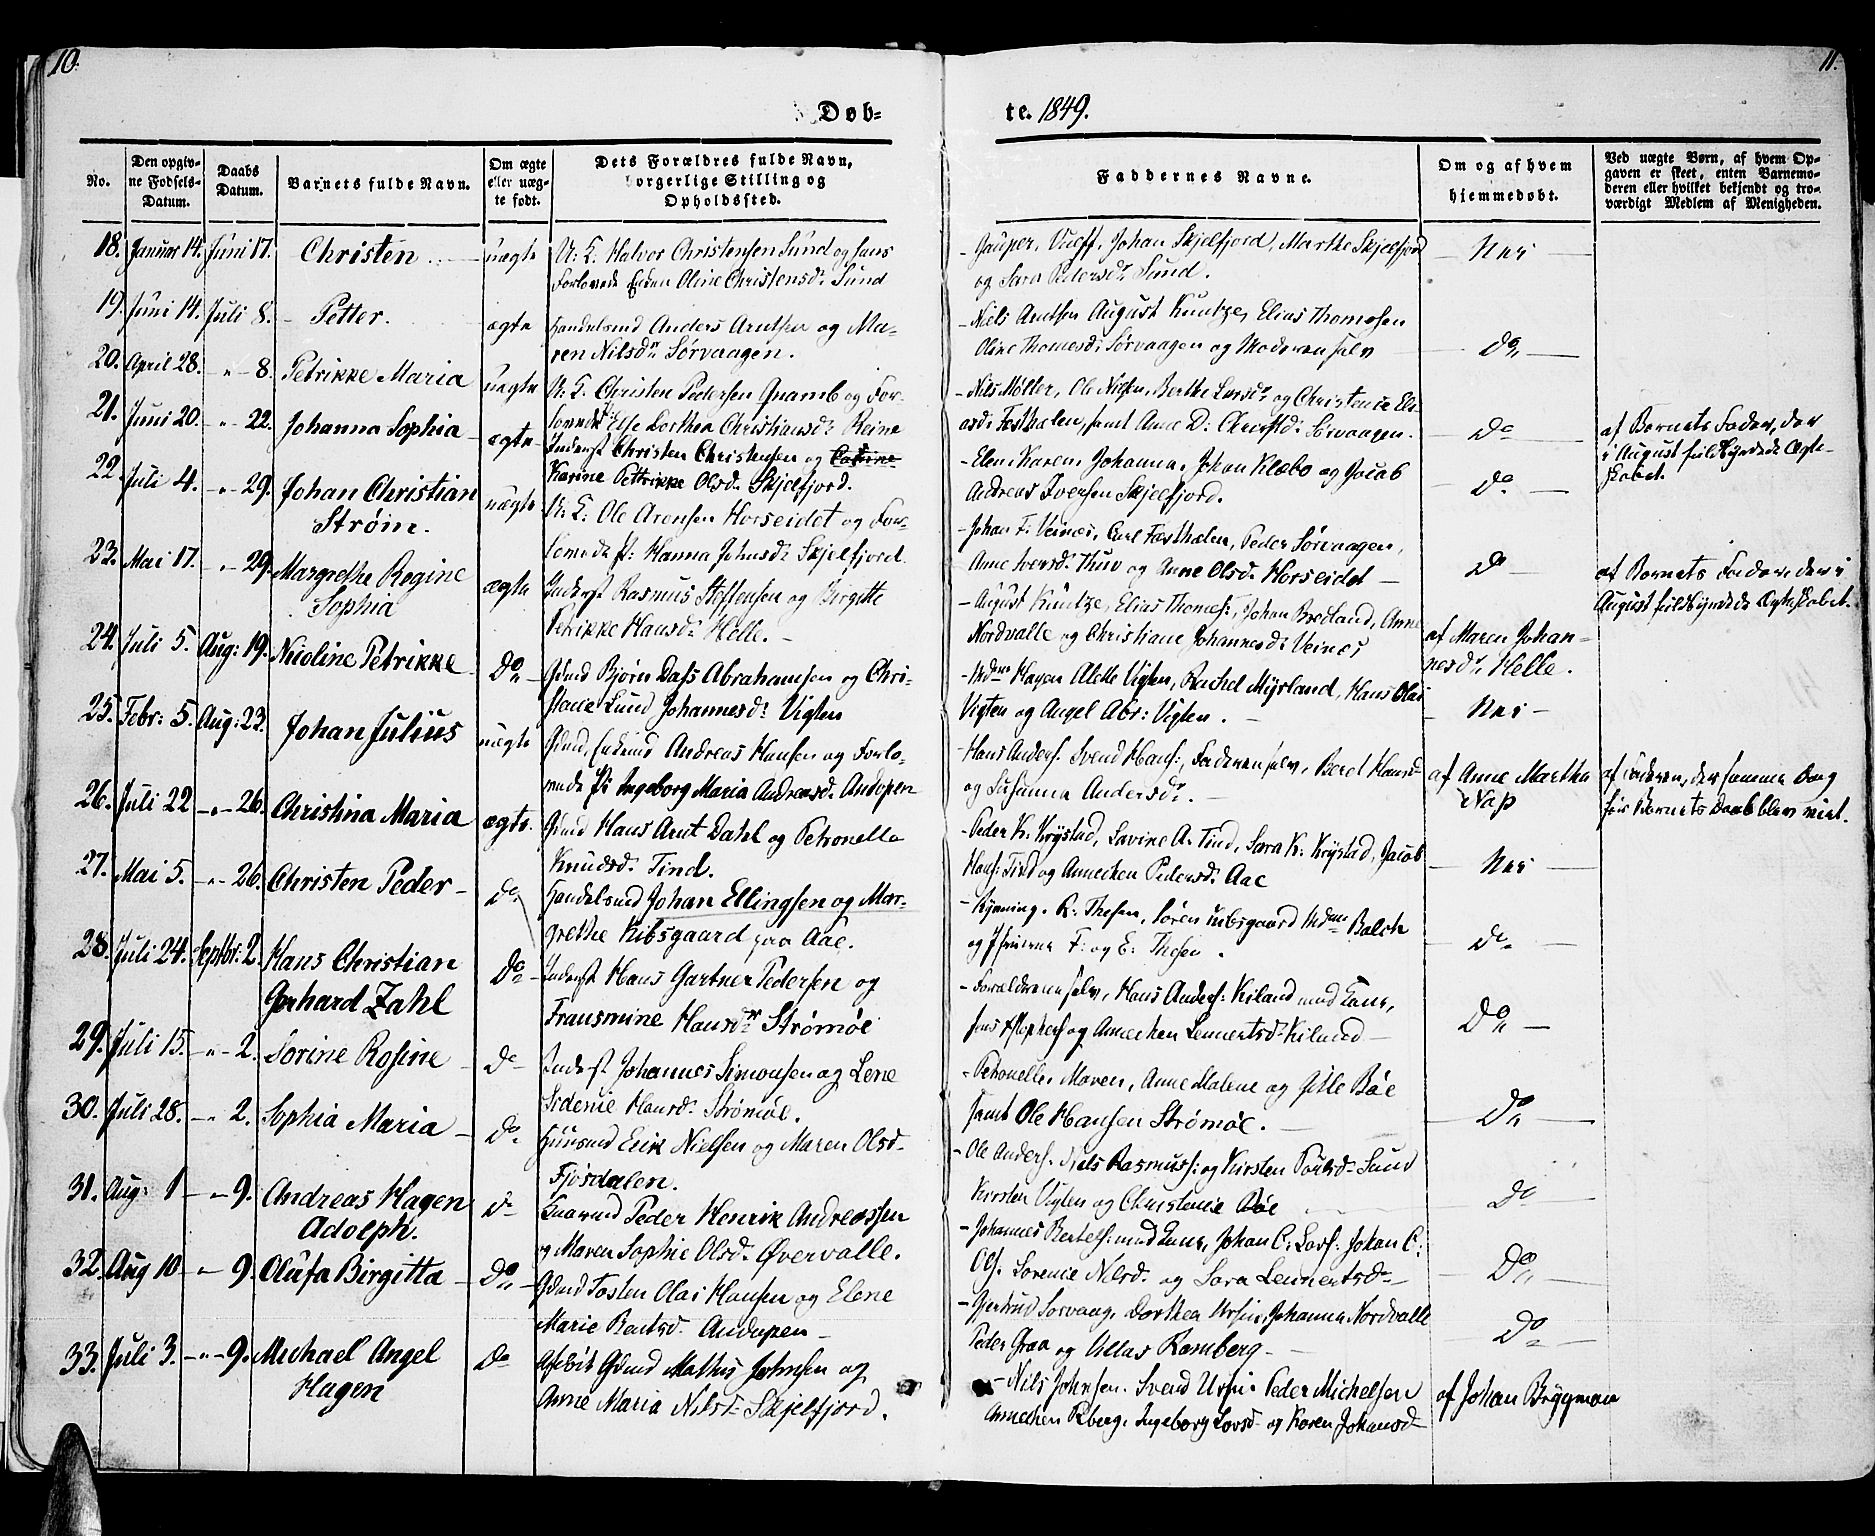 10.
11.
Døb=
te. 1849.
No.
Den opgiv-
ne Fødsels-
Datum.
Daabs
Datum.
Barnets fulde Navn.
Om ægte
eller uæg-
te født.
Dets Forældres fulde Navn,
borgerlige Stilling og
Opholdssted.
Faddernes Navne.
Om og af hvem
hjemmedøbt.
Ved uægte Børn, af hvem Op-
gaven er skeet, enten Barnemo-
deren eller hvilket bekjendt og tro-
værdigt Medlem af Menigheden.
18. Januar 14. Juni 17. Christen uægte
U: K. Halvor Christensen Sund og hans
Forlovede Oline Christensd: Sund
- Johan Skjelfjord, Marthe Skjelfjord
og Sara Pedersd: Sund.
Nei
19. Juni 14. Juli 8. Petter. ægte
Handelsmd Anders Arntsen og Ma-
ren Nilsd: Sørvaagen.
- Niels Arntsen August Kuntze, Elias Thomesen
Oline Thomesd: Sørvaagen og Moderen selv
Do
20. April 28. -"- 8. Petrikke Maria uægte
U: K. Christen Pedersen Qvamb og For-
lovede Else Dorthea Christiansd: Reine
- Nils Møller, Ole Nilsen, Berthe Larsd: og Christence El-
asd: Festhælen, samt Anne D: Sørvaagen.
Do
af Barnets Fader, der
i August fuldbyrdede Ægte-
skabet.
21. Juni 20. -"- 22. Johanna Sophia ægte
Inderst Christen Christensen og Catrine
Karine Pettrikke Olsd: Skjelfjord.
- Elen, Karen, Johanna, Johan Klæbo og Jacob
Andreas Iversen Skjelfjord.
Do
22. Juli 4. -"- 29. Johan Christian
Strøm. uægte
U: K: Ole Arensen Horseidet og For-
lovede P: Hanna Johnsd: Skjelfjord
- Johan F: Veines, Carl Festhælen, Peder Sørvaagen,
Anne Iversd: Thuv og Anne Olsd: Horseidet
Do
af Barnets Fader der i
August fuldbyrdede Ægteskabet.
23. Mai 17. -"- 29. Margrethe Regine
Sophia ægte
Inderst Rasmus Steffensen og Birgitte
Petrikke Hansd: Helle.
- August Kuntze, Elias Thomes:, Johan Bredland, Anne
Nordvalle og Christiane Johannesd: Veines
af Maren Johan-
nesd: Helle.
24. Juli 5. Aug: 19. Nicoline Petrikke Do
Gmd Bjørn Dass Abrahamsen og Chri-
stane Lund Johannesd: Vigten
- Mdme Hagen Alette Vigten, Rachel Myrland, Hans Olai
Vigten og Angel Abr: Vigten.
Nei
25. Febr: 5. Aug: 23. Johan Julius uægte
Gmd, Enkemd Andreas Hansen og Forlo-
vede P: Ingeborg Maria Andreasd: Andopen
- Hans Anders: Svend Hans:, Faderen selv, Beret Hansd:
og Susanna Andersd:.
af Anne Martha
Nap
af Faderen, der samme Dag
før Barnets Daab blev viet.
26. Juli 22 -"- 26. Christina Maria ægte
Gmd Hans Arnt Dahl og Petronella
Knudsd: Tind.
- Peder K: Krystad, Lavine A: Tind, Sara K: Krystad, Jacob
Hans: Tind og Annechen Pedersd: Aae
Nei
27. Mai 5. -"- 26. Christen Peder Do
Handelsmd Johan Ellingsen og Mar-
grethe Kibsgaard paa Aae.
- R: Thesen, Søren Kibsgaard Mdme Balch
og F: og E: Thesen.
Do
28. Juli 24. Septbr: 2. Hans Christian
Gerhard Zahl Do
Inderst Hans Gartner Pedersen og
Fransmine Hansd: Strømøe
- Forældrene selv, Hans Anders: Kiland med Kone,
Jens og Annechen Lennertsd: Kiland
Do
29. Juli 15. -"- 2. Sørine Rosine Do
Inderst Johannes Simonsen og Lene
Sidenie Hansd: Strømøe.
- Petronelle, Maren, Anne Malene og Gitle Bøe
samt Ole Hansen Strømøe.
Do
30. Juli 28. -"- 2. Sophia Maria Do
Huusmd Erik Nielsen og Maren Olsd:
Fjøsdalen.
- Ole Anders: Niels Rasmuss: og Kirsten Poulsd: Sund
Kirsten Vigten og Christence Bøe
Do
31. Aug: 1 -"- 9. Andreas Hagen
Adolph. Do
Gaarmd Peder Henrik Andreassen
og Maren Sophie Olsd: Øvervalle.
- Johannes Bertels: med Kone, Johan C: Lars: Johan C:
Ols: Sørenie Nilsd: og Sara Lennertsd:
Do
32. Aug 10 -"- 9. Olufa Birgitta Do
Gmd Tosten Olai Hansen og Elene
Marie Bentsd: Andopen
- Gjertrud Sørvaag, Dorthea Ursin, Johanna Nordvalle
Peder Graa og Ullas Ramberg
Do
33. Juli 3. -"- 9. Michael Angel
Hagen Do
Gmd Mathis Johnsen og
Anne Maria Nilsd: Skjelfjord.
- Nils Johnsen. Svend Ursin Peder Michelsen
Annechen Reberg, Ingeborg Larsd: og Karen Johansd:
af Johan Bryggman